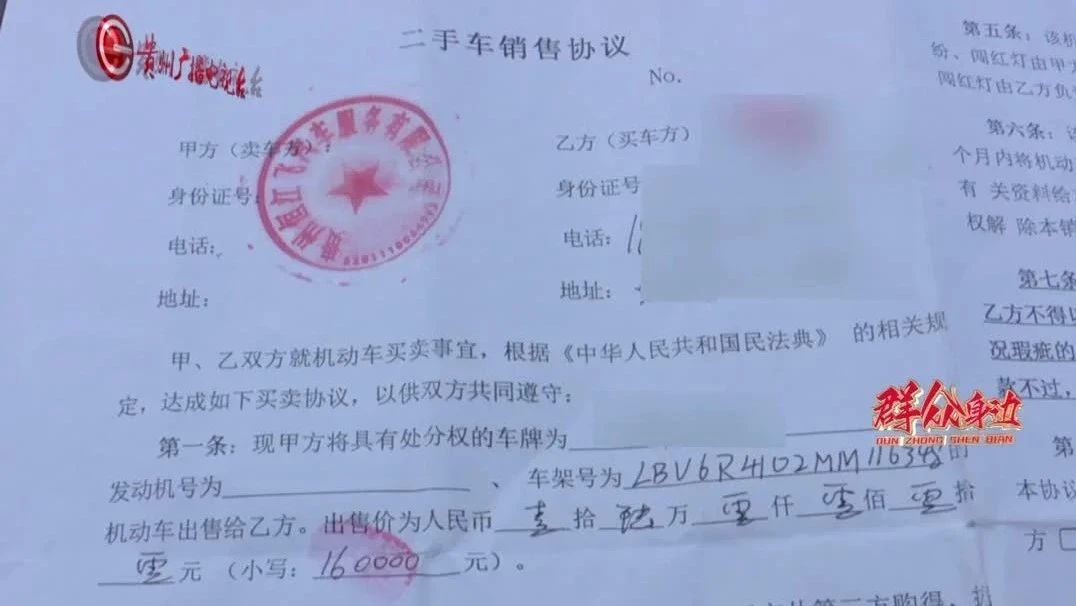 贵州广播电视台
二手车销售协议
No.
甲方（卖车方）：
身份证号：
电话：
地址：
乙方（买车方）
身份证号
电话：
地址：
汽车服务有限公司
甲、乙双方就机动车买卖事宜，根据《中华人民共和国民法典》 的相关规
定，达成如下买卖协议，以供双方共同遵守：
第一条：现甲方将具有处分权的车牌为
发动机号为 、 车架号为 LBV6R4102MM11634 的
机动车出售给乙方。出售价为人民币 壹 拾 陆 万 零 仟 零 佰 零 拾
零 元 （小写：160000 元）。
第五条：该机
纷、闯红灯由甲方
闯红灯由乙方负
第六条：
个月内将机动
有 关资料给
权解 除本销
第七条
乙方不得以
况瑕疵的
款不过，
第
本协议
方
第三方购得，
群众身边
QUN ZHONG SHEN BIAN